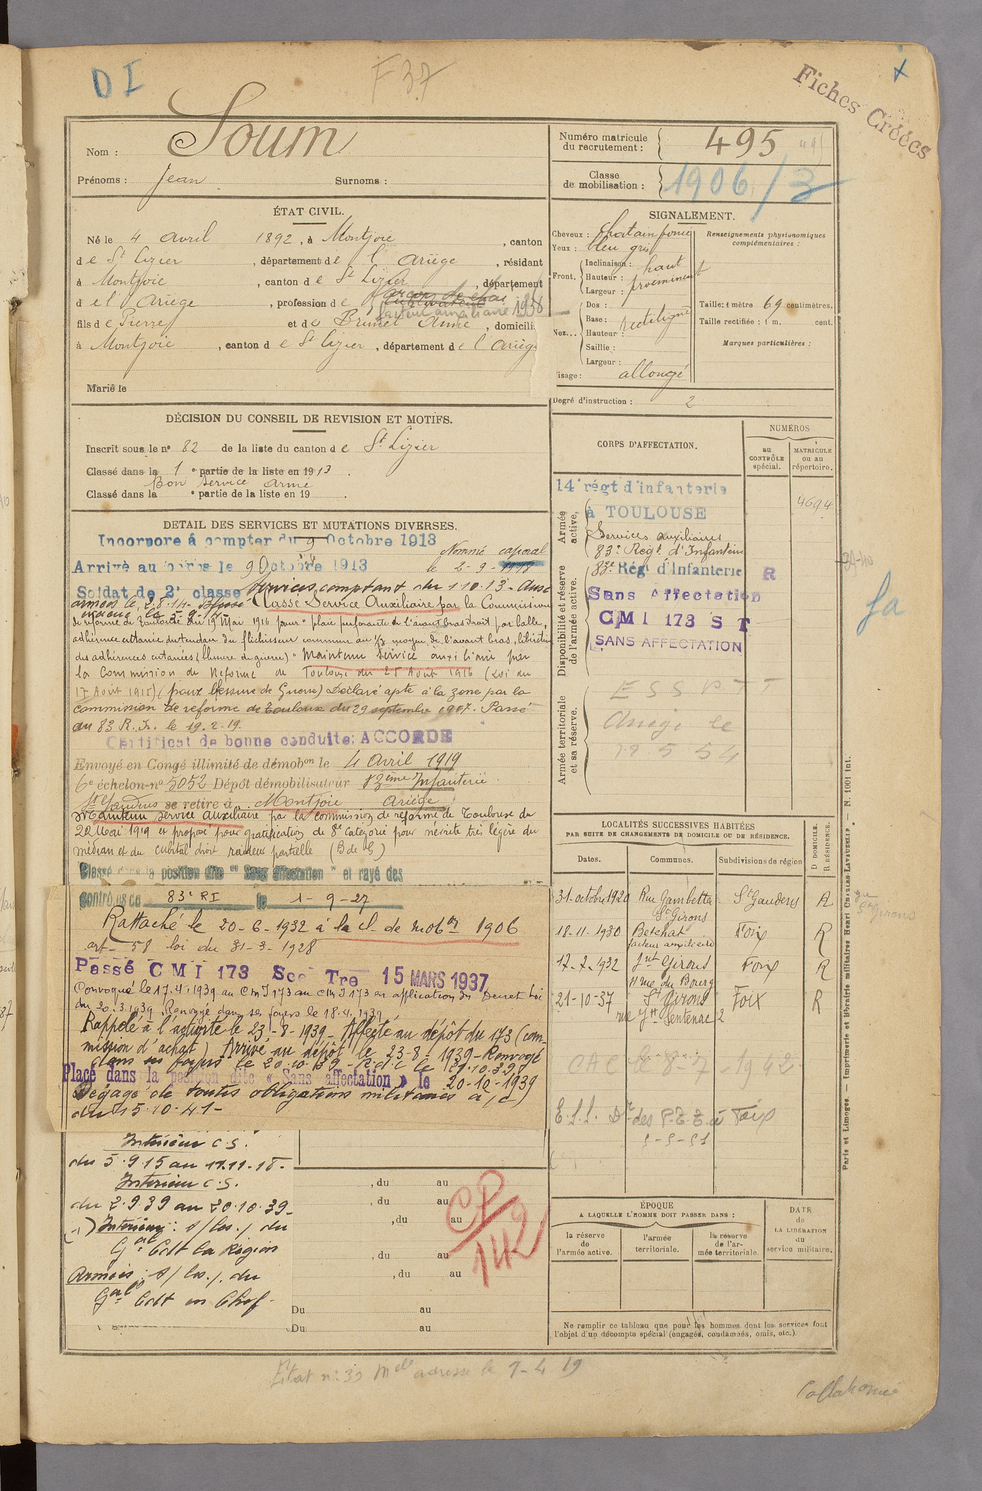 D I
F 37
Fiches Créées
Nom : Soum
Prénoms : Jean Surnoms :
Numéro matricule du recrutement : 495
Classe de mobilisation : 1906/3
ÉTAT CIVIL.
Né le 4 avril 1892, à Montjoie, canton
de St Lizier, département de l'Ariège, résidant
à Montjoie, canton de St Lizier, département
de l'Ariège, profession de
facteur auxiliaire 1938
fils de Pierre et de Brunet Anne, domiciliés
à Montjoie, canton de St Lizier, département de l'Ariège
Marié le
DÉCISION DU CONSEIL DE REVISION ET MOTIFS.
Inscrit sous le nº 82 de la liste du canton de St Lizier
Classé dans la 1e partie de la liste en 1913.
Bon service armé
Classé dans la e partie de la liste en 19
DETAIL DES SERVICES ET MUTATIONS DIVERSES.
Incorporé à compter du 9 Octobre 1913
Nommé caporal
Arrivé au corps le 9 Octobre 1913
le 2-9-
Soldat de 2e classe services comptant du 1.10.13. Aux
armées le 2.8.14.
Classé Service Auxiliaire par la Commission
de réforme de Toulouse du 19 Mai 1916 pour "plaie perforante de l'avant bras droit par balle,
des adhérences cutanées (blessure de guerre)" Maintenu Service auxiliaire par
la Commission de Réforme de Toulouse du 25 Août 1916 (Loi du
17 Août 1915) (pour blessure de Guerre) Déclaré apte à la zone par la
commission de réforme de Toulouse du 29 septembre 1917. Passé
au 83 R.I. le 19.2.19.
Certificat de bonne conduite: ACCORDÉ
Envoyé en Congé illimité de démobon le 4 Avril 1919
6e échelon-nº 5052 Dépôt démobilisateur 83ème Infanterie
se retire à Montjoie Ariège
Maintenu service auxiliaire par la commission de réforme de Toulouse du
22 Mai 1919 et proposé pour gratification de 8e catégorie pour névrite très légère du
médian et du cubital droit raideur partielle (B de G)
Classé dans la position dite "Sans affectation" et rayé des
contrôles du 83e RI le 1-9-27
Rattaché le 20-6-1932 à la cl. de mobon 1906
art. 58 loi du 31-3-1928
Passé CMI 173 Sec Tre 15 MARS 1937
Convoqué le 17.4.1939 au CMI 173 en application du Décret Loi
du 20.3.1939. Renvoyé dans ses foyers le 18.4.1939
Rappelé à l'activité le 23-8-1939. Affecté au dépôt du 173 (com-
mission d'achat) Arrivé au dépôt le 23-8-1939-Renvoyé
dans ses foyers le 20.10.39
Placé dans la position dite « Sans affectation » le 20-10-1939
Dégagé de toutes obligations militaires à/c
du 15.10.41-
Intérieur C.S.
du 5.9.15 au 11.11.18-
Intérieur C.S.
du 2.9.39 au 20.10.39-
Intérieur : s/ les./. du
Gal Cdt la Région
Armées : s/ les./. du
Gal Cdt en Chef-
, du au
, du au
, du au
, du au
, du au
Du au
Du au
CP
142
SIGNALEMENT.
Cheveux : chatain foncé
Yeux : bleu gris
Front. Inclinaison : haut
Hauteur : proéminent
Largeur :
Nez... Dos :
Base : rectiligne
Hauteur :
Saillie :
Largeur :
Visage : allongé
Renseignements physionomiques complémentaires :
Taille: 1 mètre 69 centimètres.
Taille rectifiée : 1 m. cent.
Marques particulières :
Degré d'instruction : 2
CORPS D'AFFECTATION.
NUMÉROS
au CONTRÔLE spécial.
MATRICULE ou au répertoire.
Armée active.
14e régt d'infanterie
à TOULOUSE
4694
Services auxiliaires
83e Régt d'Infanterie
Disponibilité et réserve de l'armée active.
83e Régt d'Infanterie R
Sans Affectation
CMI 173 ST
SANS AFFECTATION
Armée territoriale et sa réserve.
ESSPTT
Ariège le
19 5 54
LOCALITÉS SUCCESSIVES HABITÉES
PAR SUITE DE CHANGEMENTS DE DOMICILE OU DE RÉSIDENCE.
D. DOMICILE. R. RÉSIDENCE.
Dates. Communes. Subdivisions de région
31-octobre 1920 Rue Gambetta St Girons St Gaudens
18-11-1930 Betchat facteur auxiliaire Foix R
17-2-1932 Snt Girons 11 rue du Bourg Foix R
21-10-37 St Girons rue Jh Sentenac 2 Foix R
CAC le 8-7-1942
Dr des P.T.T. à Foix
ÉPOQUE
A LAQUELLE L'HOMME DOIT PASSER DANS :
la réserve de l'armée active.
l'armée territoriale.
la réserve de l'armée territoriale.
DATE de LA LIBÉRATION du service militaire.
Ne remplir ce tableau que pour les hommes dont les services font
l'objet d'un décompte spécial (engagés, condamnés, omis, etc.)
Paris et Limoges. — Imprimerie et librairie militaires Henri Charles-Lavauzelle. — N. 1001 int.
Collationné